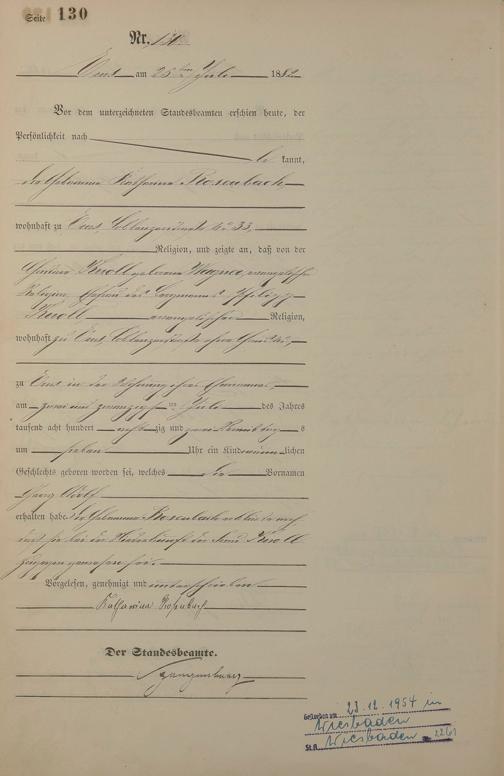 Seite 130
Nr. 130
Ems am 25ten Juli 1882
Vor dem unterzeichneten Standesbeamten erschien heute, der
Persönlichkeit nach
be kannt,
die Hebamme Katharina Rosenbach
wohnhaft zu Ems, Coblenzerstraße No 33,
Religion, und zeigte an, daß von der
Knoll geborene Wagner, evangelischer
Religion, Ehefrau des Philipp
Knoll evangelischer Religion,
wohnhaft zu Ems, Coblenzerstraße
zu Ems in der Wohnung ihres Ehemannes,
am zwei und zwanzigsten Juli des Jahres
tausend acht hundert achtzig und zwei s
um sieben Uhr ein Kind männlichen
Geschlechts geboren worden sei, welches die Vornamen
Georg Adolf
erhalten habe. Die Hebamme Rosenbach
daß sie bei der Niederkunft der Knoll
zugegen gewesen sei.
Vorgelesen, genehmigt und unterschrieben
Katharina Rosenbach
Der Standesbeamte.
Gestorben am 23.12.1954 in
Wiesbaden
St.A. Wiesbaden 2261